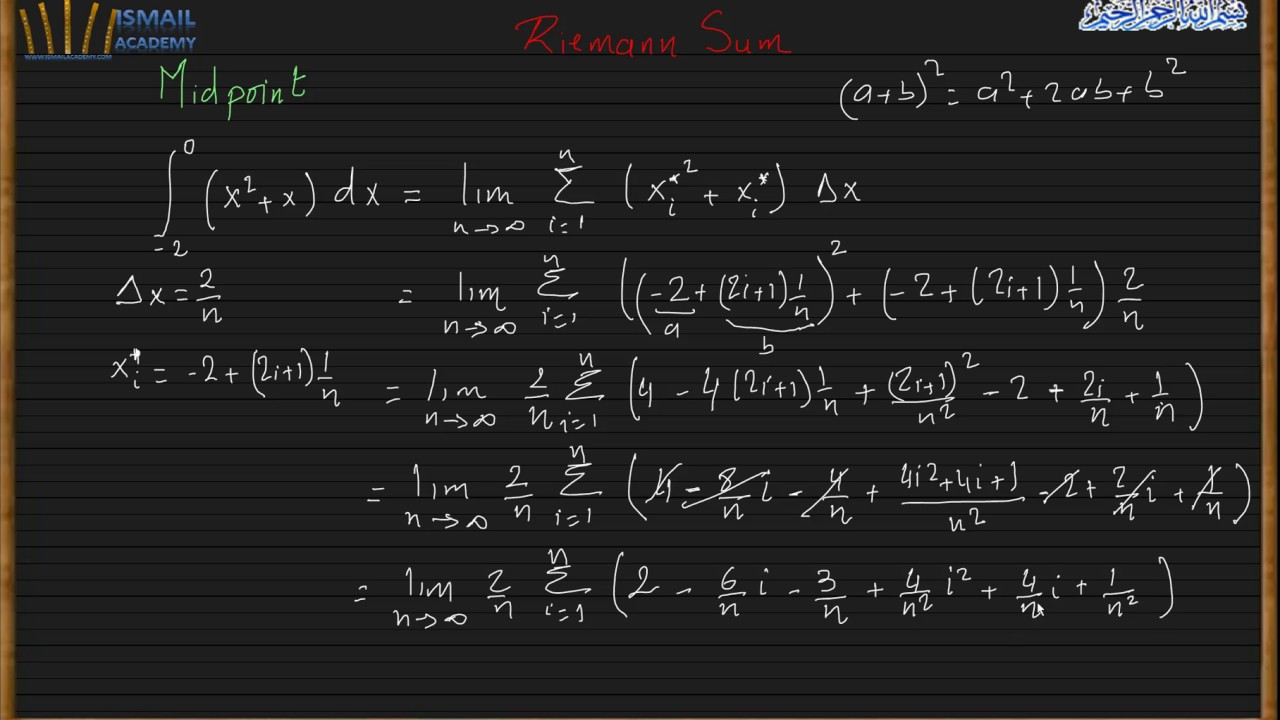 ISMAIL
ACADEMY
WWW.ISMAILACADEMY.COM
Riemann Sum
بسم الله الرحمن الرحيم
Midpoint
(a+b)² = a² + 2ab + b²
∫₋₂⁰ (x² + x) dx = lim n→∞ Σ i=1 n (xᵢ*² + xᵢ*) Δx
Δx = 2/n
= lim n→∞ Σ i=1 n ((-2 + (2i+1) 1/n)² + (-2 + (2i+1) 1/n) 2/n
a
b
xᵢ* = -2 + (2i+1) 1/n
= lim n→∞ 2/n Σ i=1 n (4 - 4(2i+1) 1/n + (2i+1)²/n² - 2 + 2i/n + 1/n)
= lim n→∞ 2/n Σ i=1 n (4 - 8/n i - 4/n + (4i²+4i+1)/n² - 2 + 2/n i + 1/n)
= lim n→∞ 2/n Σ i=1 n (2 - 6/n i - 3/n + 4/n² i² + 4/n i + 1/n²)